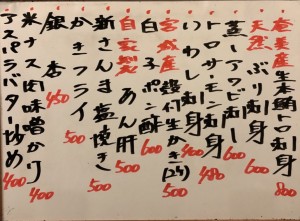 奄美産生本鮪トロ刺身 800
天然ぶり刺身 600
蒸しアワビ刺身 600
トロサーモン刺身 480
いわし刺身 500
宮城産殻付生かき(2ヶ) 600
白子ポン酢 600
自家製あん肝 500
新さんま塩焼き 500
かきフライ 500
銀杏 450
米ナス肉味噌かけ 400
アスパラバター炒め 400